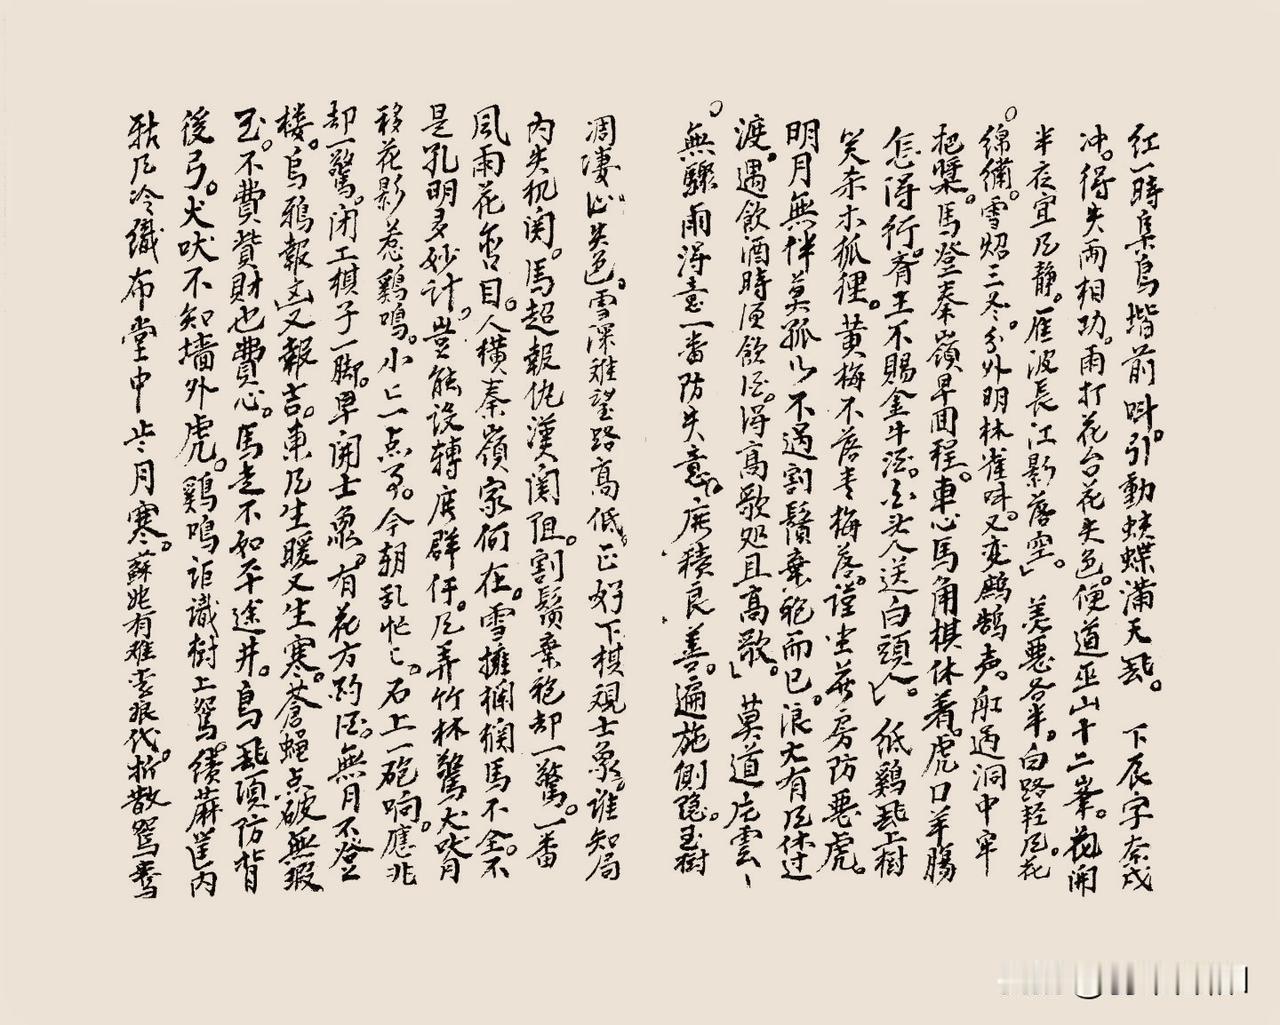 紅一時集鳥堦前呌。引動蛱蝶滿天飛。下辰字奈戌
冲。得失兩相功。雨打花台花失色。便道巫山十二峯。花開
半夜宜風静。雁波長江影落空。美惡各半。白路轻風。花
綿綉。雪炤三冬。分外明林雀呌。又变鹧鸪声。舡過洞中牢
把槳。馬登秦嶺早回程。車心馬角棋休着。虎口羊腸
怎得行。齊王不賜金牛酒。白头人送白頭人。低鷄飛上樹
笑杀木狐狸。黄梅不落青梅落。謹坐茶房防惡虎。
明月無伴莫孤 不過割鬚棄袍而已。浪大有風休过
渡。遇飲酒時須飲酒。得高歌処且高歌。莫道片雲
無驟雨得意一番防失意。庶積良善。遍施惻隐。玉樹
凋凄 失色。雪深难望路高低。正好下棋观士象。谁知局
内失机関。馬超報仇漢関阻。割鬚棄袍却一驚。一番
風雨花 目。人横秦嶺家何在。雪擁 馬不全。不
是孔明多妙计。豈能设轉 群 。風弄竹林驚犬吠月
移花影惹鷄鳴。小亡一点 。今朝乱忙亡。石上一砲响。應兆
却一驚。闭工棋子一脚。早開士象。有花方酌酒。無月不登
楼。烏鴉報凶又報吉。東風生暖又生寒。蒼蝇点破無瑕
玉。不費貲財也費心。馬走不如平途井。鳥飛項防背
後弓。犬吠不知墙外虎。鷄鳴讵識樹上鴛。績蔴筐内
風冷織布堂中 月寒。蘇 有难李 代。拆散鴛鴦